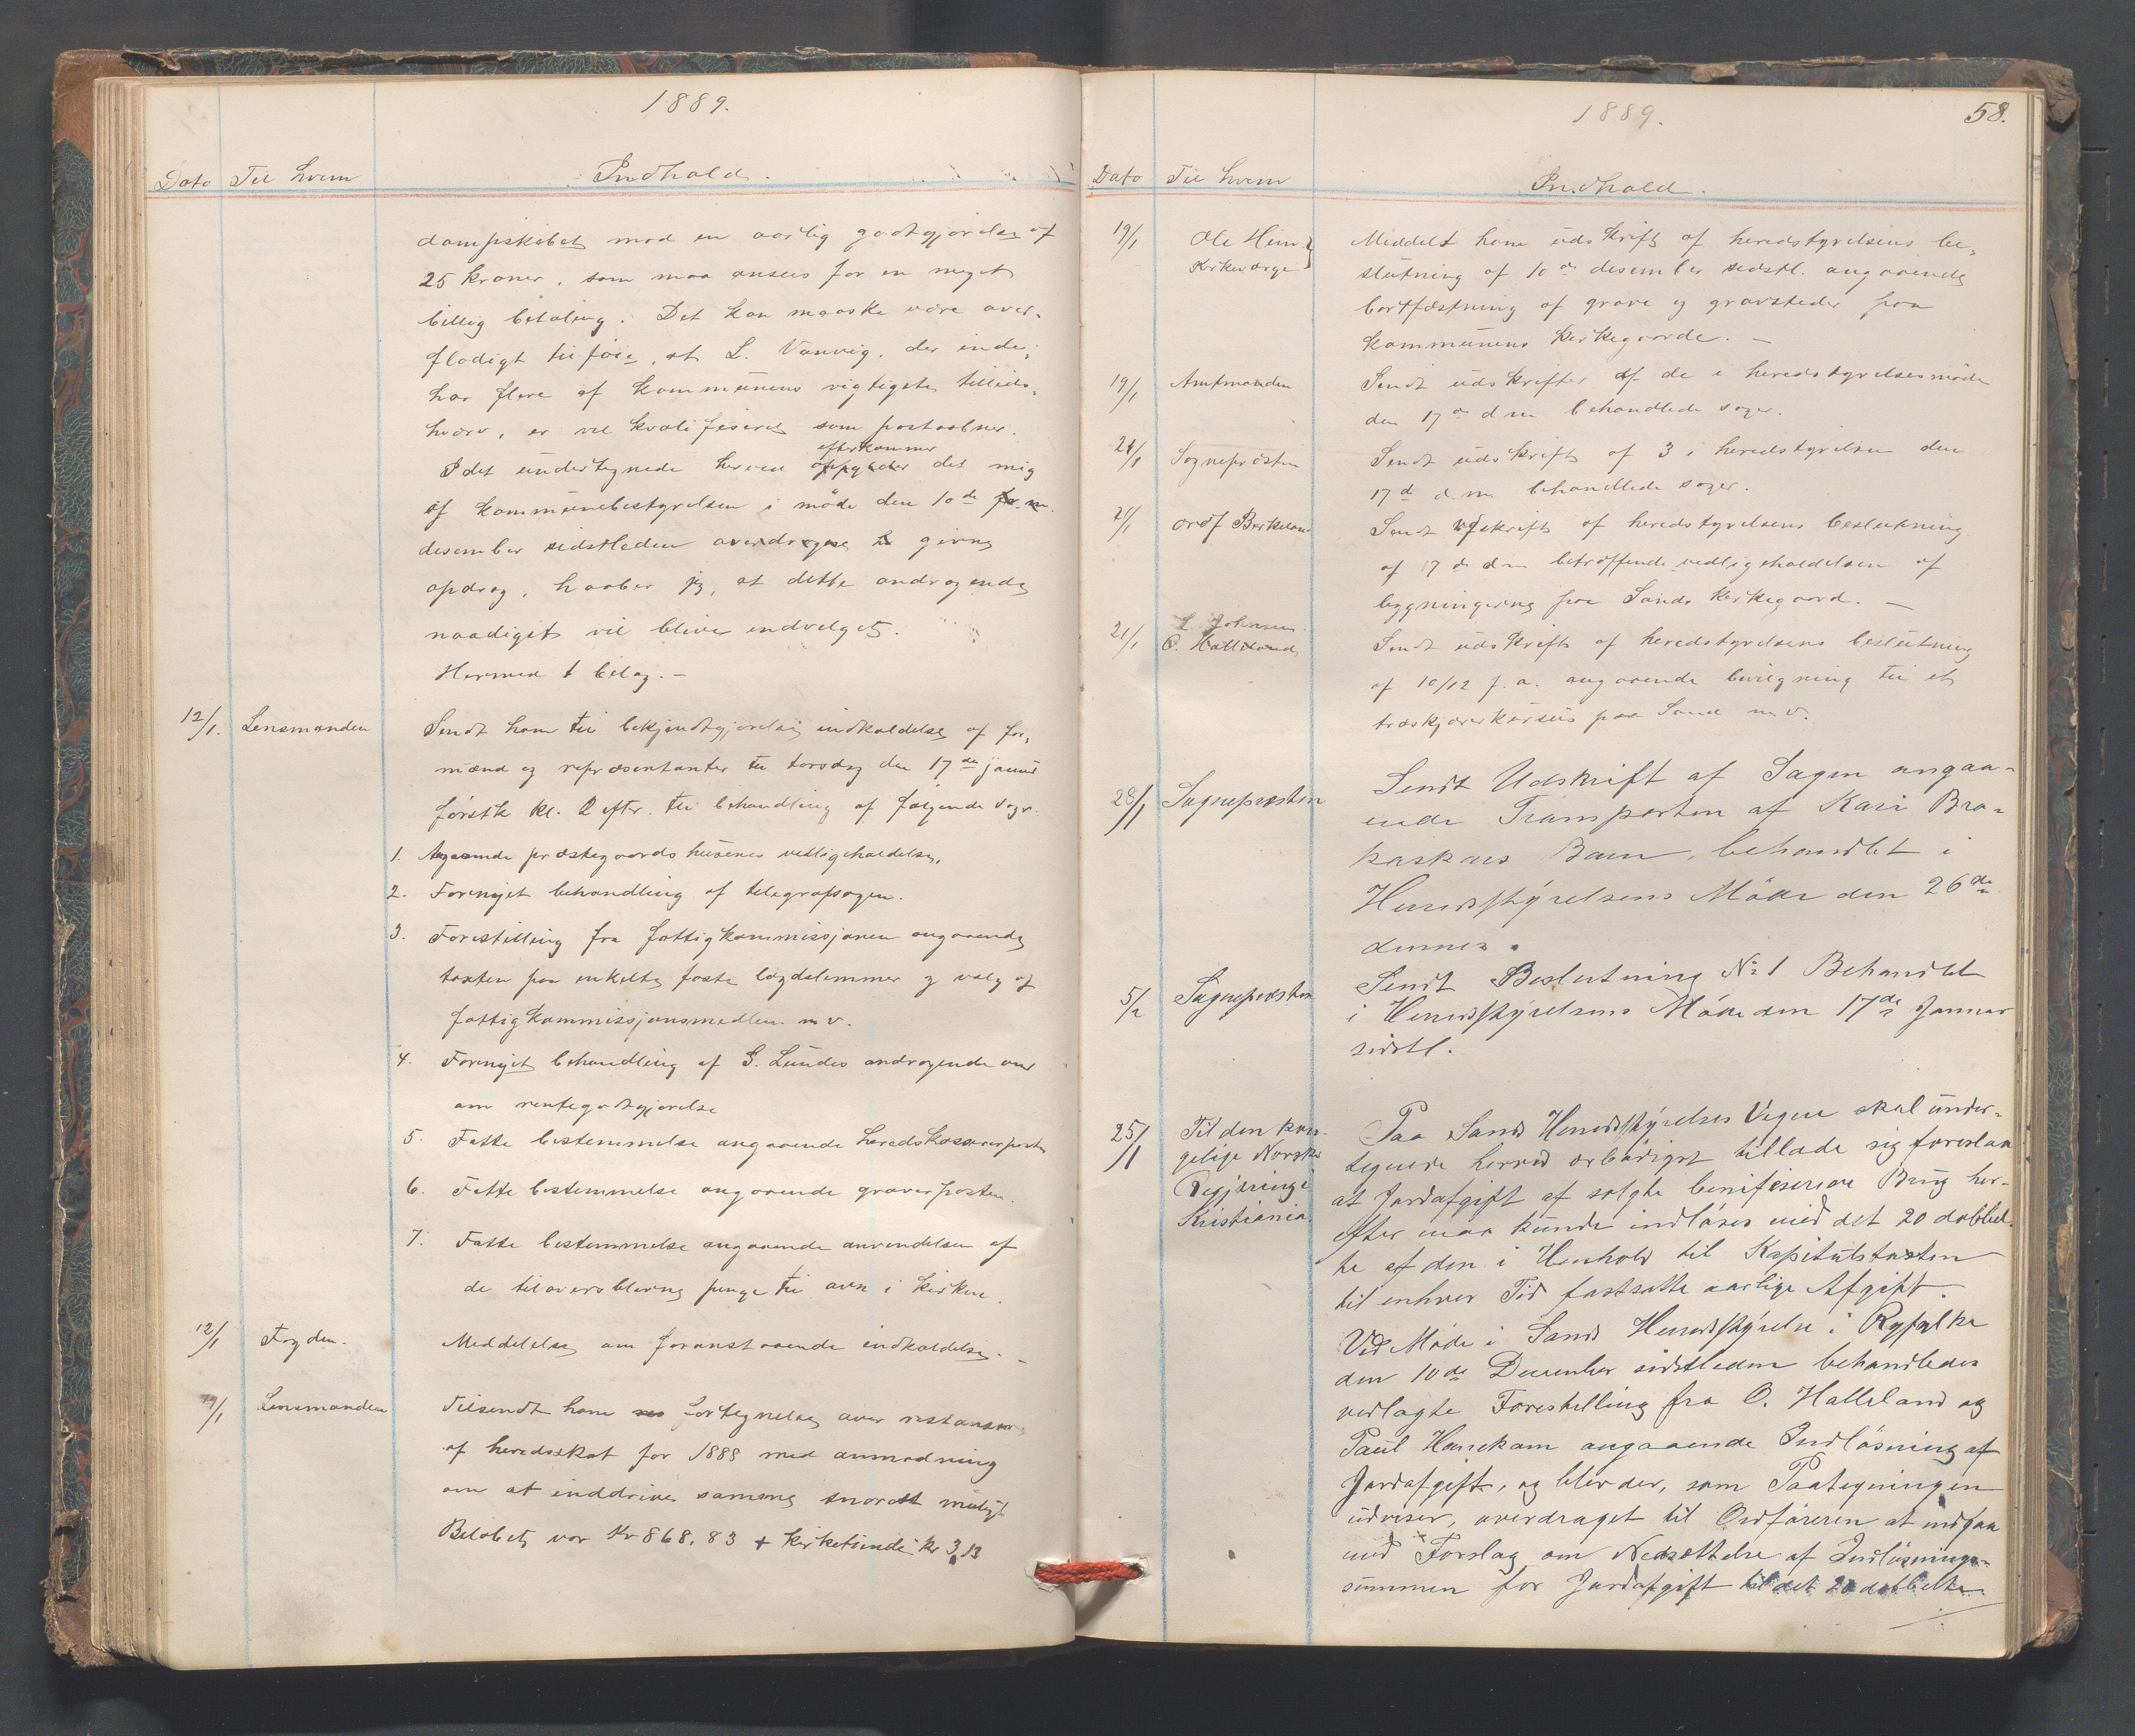 1889.
Dato Til hvem Indhold.
dampskibet mod en aarlig godtgjørelse af
25 kroner, som maa ansees for en meget
billig betaling. Det kan maaske være over-
flødigt tilføie, at L. Vanvig, der inde-
har flere af kommunens vigtigste tillids-
hverv, er vel kvalifiseret som postaabner.
efterkommer
Idet undertegnede herved det mig
af kommunebestyrelsen i møde den 10de
desember sidstleden givne
opdrag, haaber jeg, at dette andragende
naadigst vil blive indvilget.
Hermed 1 bilag. -
12/1. Lensmanden Sendt ham til bekjendtgjørelse indkaldelse af for-
mænd og repræsentanter til torsdag den 17de januar
førstk kl. 2 efter. til behandling af følgende sager.
1. Angaaende præstegaardshusenes vedligeholdelse.
2. Fornyet behandling af telegrafsagen.
3. Forestilling fra fattigkommissjonen angaaende
taxten paa enkelte faste lægdslemmer og valg af
fattigkommissjonsmedlem m v.
4. Fornyet behandling af G. Lundes andragende om
om rentegodtgjørelse
5. Fatte bestemmelse angaaende heredskasserer posten
6. Fatte bestemmelse angaaende graver posten.
7. Fatte bestemmelse angaaende anvendelsen af
de tiloversblevne penge til ovn i kirken.
12/1 Fogden. Meddelelse om foranstaaende indkaldelse. -
19/1 Lensmanden Tilsendt ham fortegnelse over restanser
af heredsskat for 1888 med anmodning
om at inddrive samme snarest muligt
Beløbet var Kr 868,83 + kirketiende kr 3,13
1889. 58.
Dato Til hvem Indhold.
19/1 Ole Heim Meddelt ham udskrift af heredstyrelsens be-
Kirkeværge slutning af 10de desember sidstl. angaaende
bortfæstning af grave og gravsteder paa
kommunens kirkegaarde. -
19/1 Amtmanden Sendt udskrifter af de i heredstyrelsesmøde
den 17de d m behandlede sager.
21/1 Sognepræsten Sendt udskrift af 3 i heredstyrelsen den
17de d. m behandlede sager.
21/1 Ordf Birkeland Sendt udskrift af heredstyrelsens beslutning
af 17de d m betræffende vedligeholdelsen af
bygningerne paa Sands kirkegaard. -
L. Johnsen
21/1 O. Halleland Sendt udskrift af heredstyrelsens beslutning
af 10/12 f. a. angaaende bevilgning til et
træskjærerkursus paa Sand m v.
28/1 Sognepresten Sendt Udskrift af Sagen angaa-
ende Transporten af Kari Bra-
kaskars Barn, behandlet i
Herredstyrelsens Møde den 26de
dennes.
5/2 Sognepresten Sendt Beslutning No 1 Behandlet
i Herredstyrelsens Møde den 17de Januar
sidstl.
25/1 Til den kon- Paa Sands Herredstyrelses Vegne skal under-
gelige Norske tegnede herved ærbødigst tillade sig foreslaa
Regjæring i at Jordafgift af solgte benifiserede Brug her-
Kristiania. efter maa kunde indløses med det 20 dobbel-
te af den i Henhold til Kapitulstaxten
til enhver Tid fastsatte aarlige Afgift.
Ved Møde i Sands Herredstyrelse i Ryfylke
den 10de December sidstleden behandledes
vedlagte Forestilling fra O. Halleland og
Paul Hanekam angaaende Indløsning af
Jordafgift, og blev der, som Paategningen
udviser, overdraget til Ordføreren at indgaa
med Forslag om Nedsættelse af Indløsnings-
summen for Jordafgift til det 20 dobbelte